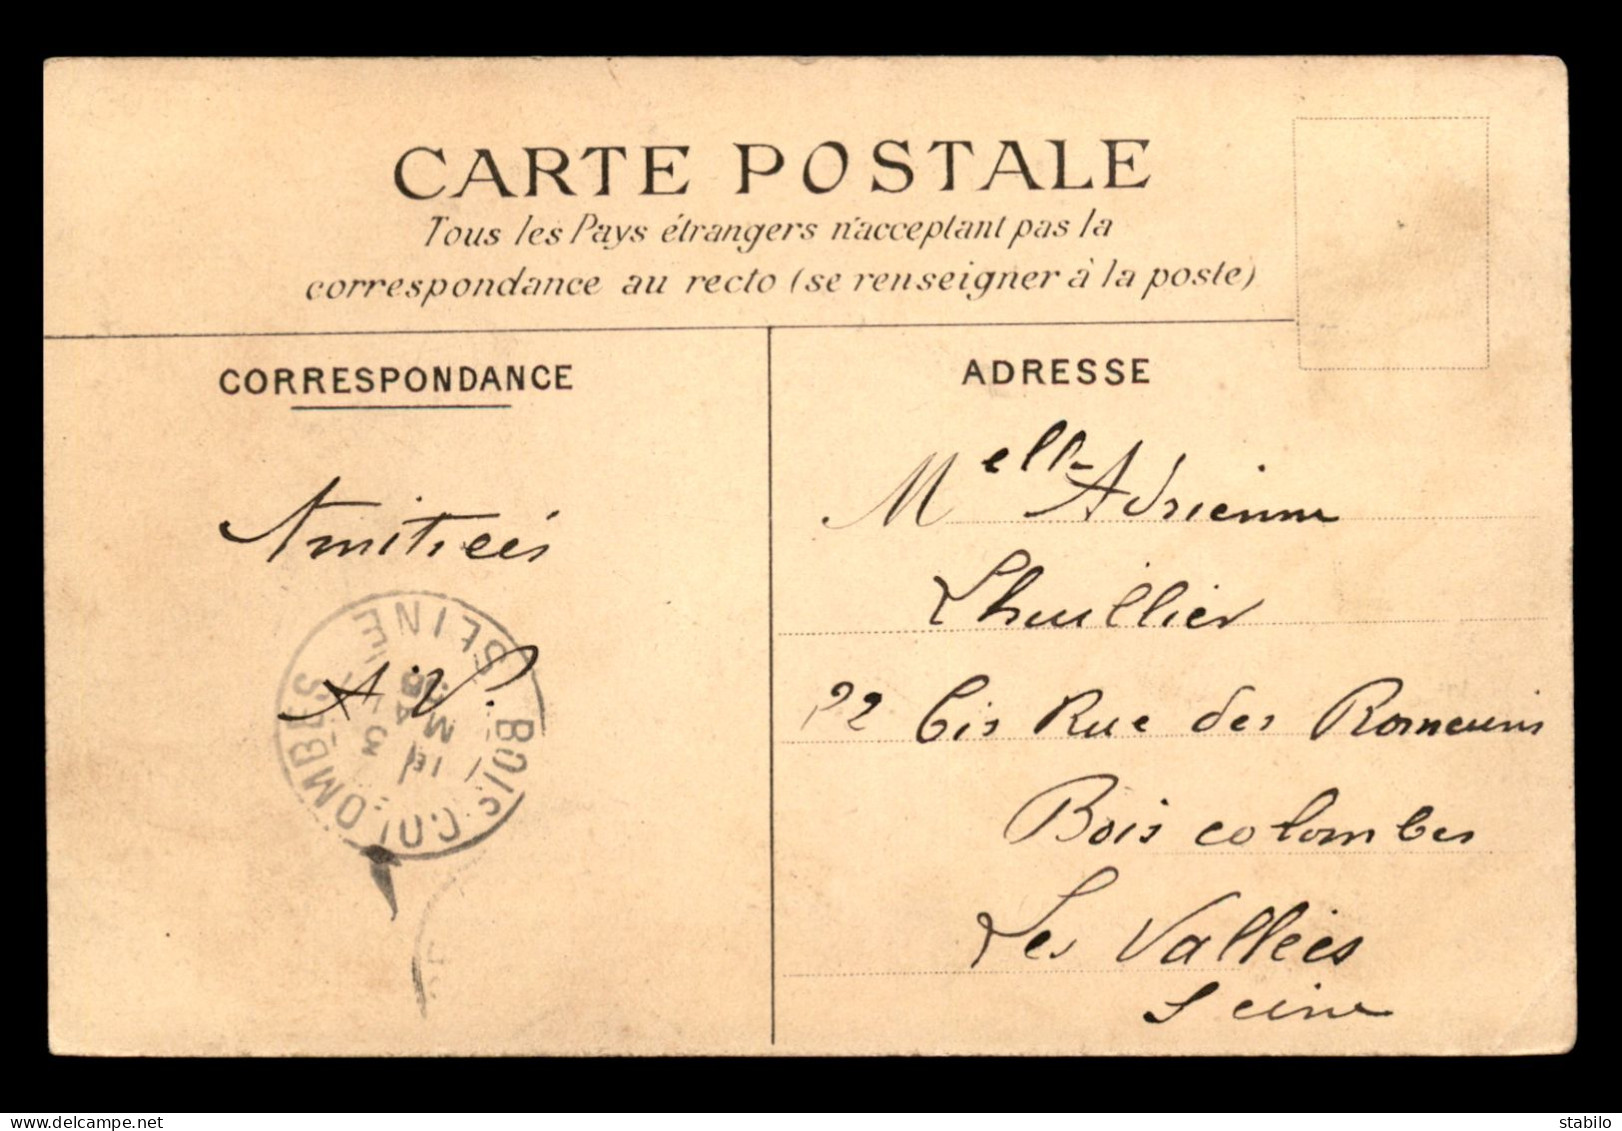 CARTE POSTALE
Tous les Pays étrangers n'acceptant pas la
correspondance au recto (se renseigner à la poste)
CORRESPONDANCE
ADRESSE
Amitiées
A. V.
BOIS-COLOMBES
SEINE
Melle Adrienne
Lhuillier
22 bis Rue des
Bois colombes
Les Vallées
Seine
delcampe.net
stabilo